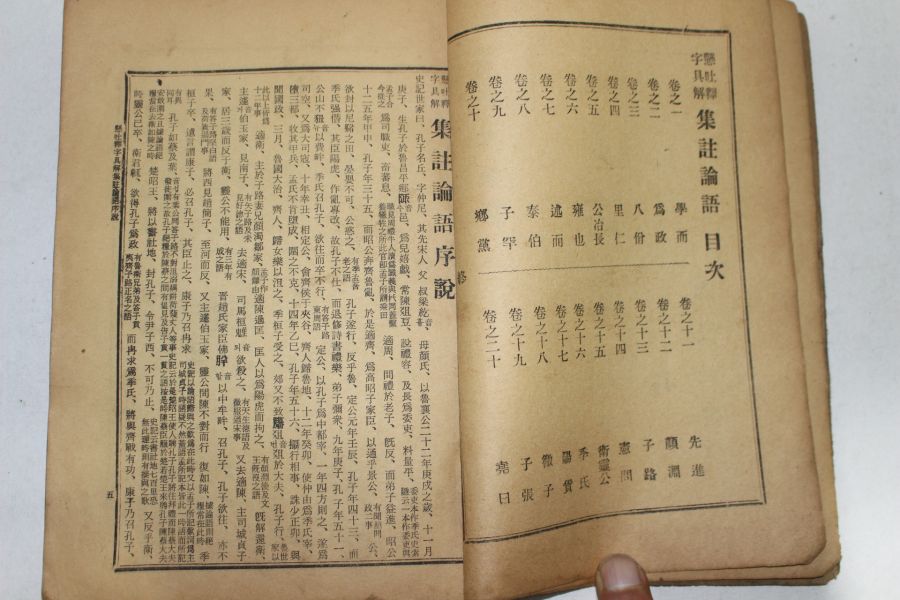 懸吐釋
字具解
集註論語目次
卷之一 學而
卷之二 爲政
卷之三 八佾
卷之四 里仁
卷之五 公冶長
卷之六 雍也
卷之七 述而
卷之八 泰伯
卷之九 子罕
卷之十 鄕黨
卷之十一 先進
卷之十二 顏淵
卷之十三 子路
卷之十四 憲問
卷之十五 衛靈公
卷之十六 季氏
卷之十七 陽貨
卷之十八 微子
卷之十九 子張
卷之二十 堯曰
懸吐釋
字具解
集註論語序說
史記世家曰、孔子名丘、字仲尼、其先宋人、父叔梁紇、母顏氏、以魯襄公二十二年庚戌之歲、十一月
庚子、生孔子於魯昌平鄕陬邑、爲兒嬉戱、常陳俎豆、設禮容、及長爲委吏、料量平、
爲司職吏、畜蕃息、適周、問禮於老子、旣反、而弟子益進、昭公
二十五年甲申、孔子年三十五、而昭公奔齊魯亂、於是適齊、爲高昭子家臣、以通乎景公、公
欲封以尼谿之田、晏嬰不可、公惑之、孔子遂行、反乎魯、定公元年壬辰、孔子年四十三、而
季氏强僭、其臣陽虎、作亂專政、故孔子不仕、而退修詩書禮樂、弟子彌衆、九年庚子、孔子年五十一、
公山不狃以費畔、季氏召孔子、欲往而卒不行、定公、以孔子爲中都宰、一年四方則之、遂爲
司空、又爲大司寇、十年辛丑、相定公、會齊侯于夾谷、齊人歸魯地、十二年癸卯、使仲由爲季氏宰、
墮三都、收其甲兵、孟氏不肯墮成、圍之不克、十四年乙巳、孔子年五十六、攝行相事、誅少正卯、與
聞國政、三月、魯國大治、齊人、歸女樂以沮之、季桓子受之、郊又不致膰俎於大夫、孔子行、
適衛、主於子路妻兄顏濁鄒家、適陳過匡、匡人以爲陽虎而拘之、旣解還衛、
主蘧伯玉家、見南子、去適宋、司馬桓魋欲殺之、又去適陳、主司城貞子
家、居三歲而反于衛、靈公不能用、晉趙氏家臣佛肸以中牟畔、召孔子、孔子欲往、亦不
果、將西見趙簡子、至河而反、又主蘧伯玉家、靈公問陳、不對而行、復如陳、季
桓子卒、遺言謂康子、必召孔子、其臣止之、康子乃召冉求
孔子如蔡及葉、
楚昭王、將以書社地、封孔子、令尹子西、不可乃止、又反乎衛、
時靈公已卒、衛君輒、欲得孔子爲政、而冉求爲季氏、將與齊戰有功、康子乃召孔子、
懸吐釋字具解集註論語序說
五